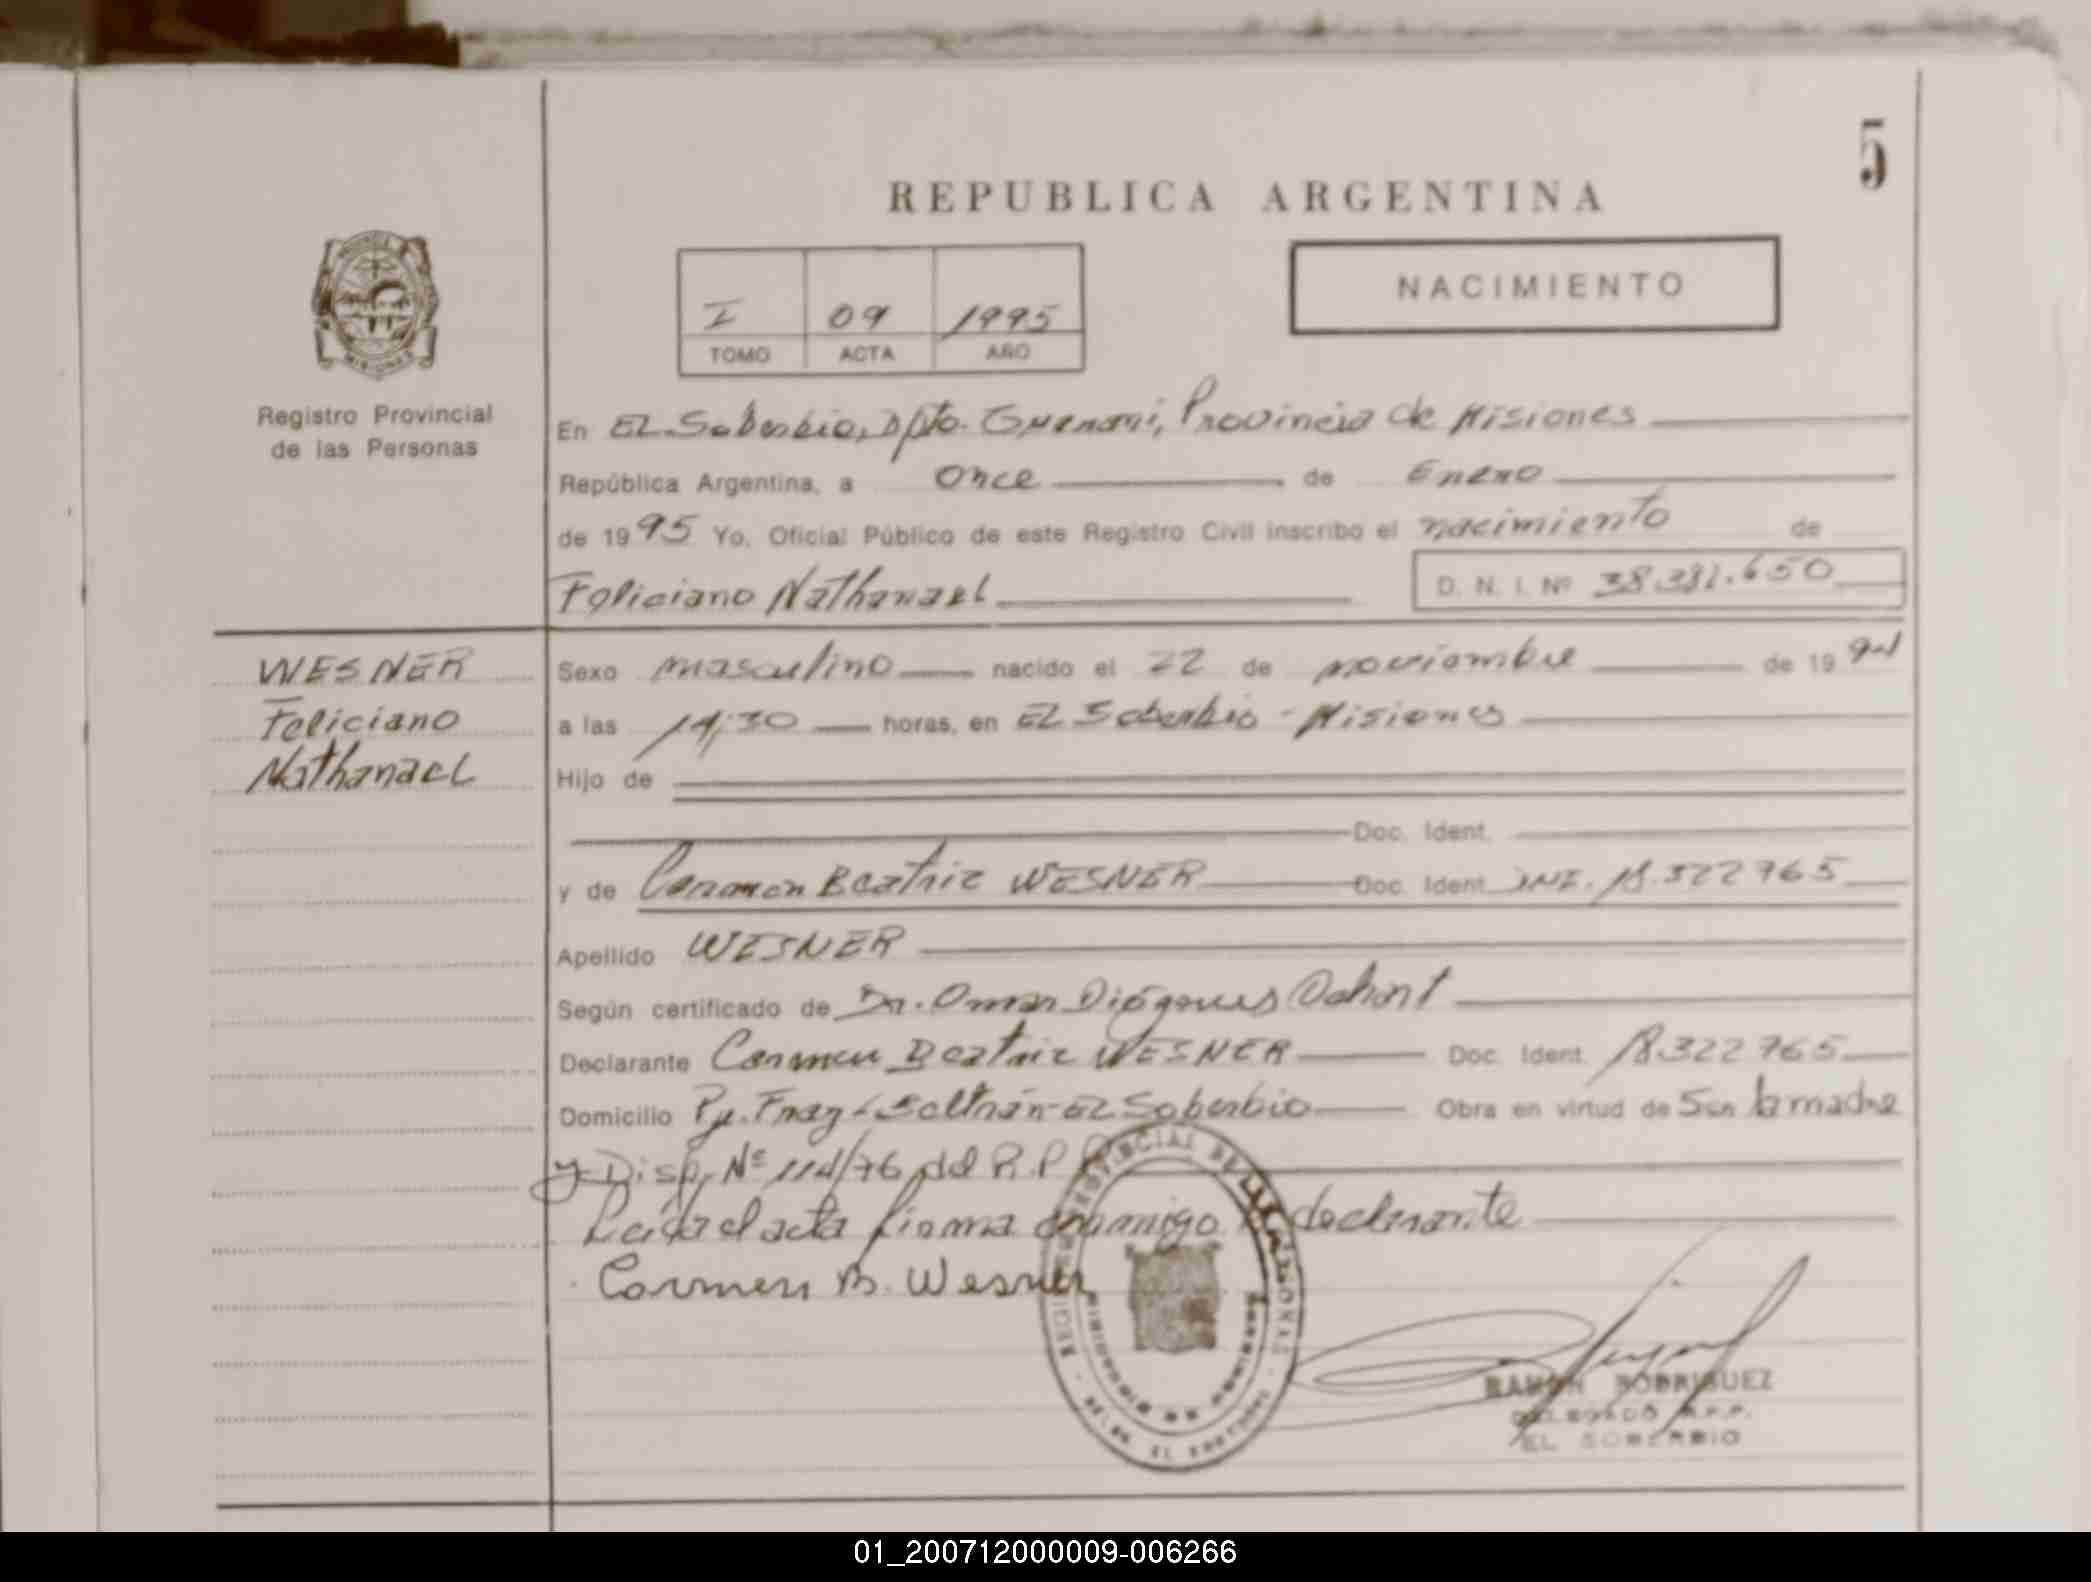 5
REPUBLICA ARGENTINA
NACIMIENTO
I 09 1995
TOMO ACTA AÑO
MISIONES
Registro Provincial
de las Personas
En EL Soberbio, Dpto. Guarani, Provincia de Misiones
República Argentina, a Once de Enero
de 1995 Yo, Oficial Público de este Registro Civil inscribo el nacimiento de
Feliciano Nathanael D. N. I. Nº 38.381.650
WESNER
Feliciano
Nathanael
Sexo masculino nacido el 22 de noviembre de 1994
a las 14,30 horas, en EL Soberbio - Misiones
Hijo de
Doc. Ident.
y de Carmen Beatriz WESNER Doc. Ident. DNI. 18.322765
Apellido WESNER
Según certificado de Dr. Omar Diógenes
Declarante Carmen Beatriz WESNER Doc. Ident. 18.322765
Domicilio Fray L Beltrán - EL Soberbio Obra en virtud de Ser la madre
y Disp. Nº 114/76 del R.P.P.
Leida el acta firma conmigo la declarante
Carmen B. Wesner
REGISTRO PROVINCIAL DE LAS PERSONAS
MINISTERIO DE GOBIERNO
EL SOBERBIO
RAMON RODRIGUEZ
DELEGADO R.P.P.
EL SOBERBIO
01_200712000009-006266